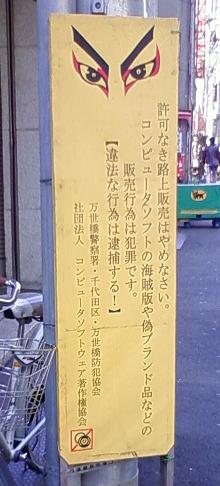 許可なき路上販売はやめなさい。
コンピュータソフトの海賊版や偽ブランド品などの
販売行為は犯罪です。
【違法な行為は逮捕する！】
万世橋警察署・千代田区・万世橋防犯協会
社団法人　コンピュータソフトウェア著作権協会